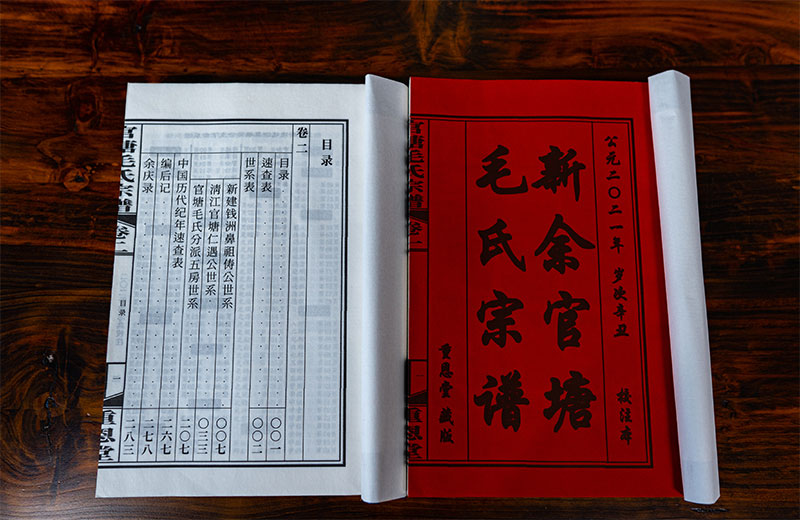 公元二〇二一年 岁次辛丑 校注本
新余官塘
毛氏宗谱
重恩堂 藏版
官塘毛氏宗谱 卷二 重恩堂
目录
卷二
目录 〇〇一
速查表 〇〇二
世系表
新建钱洲鼻祖俦公世系 〇〇七
清江官塘仁遇公世系 〇三三
官塘毛氏分派五房世系 二〇七
中国历代纪年速查表 二六七
编后记 二七八
余庆录 二八三
官塘毛氏宗谱 卷二 目录 一 重恩堂